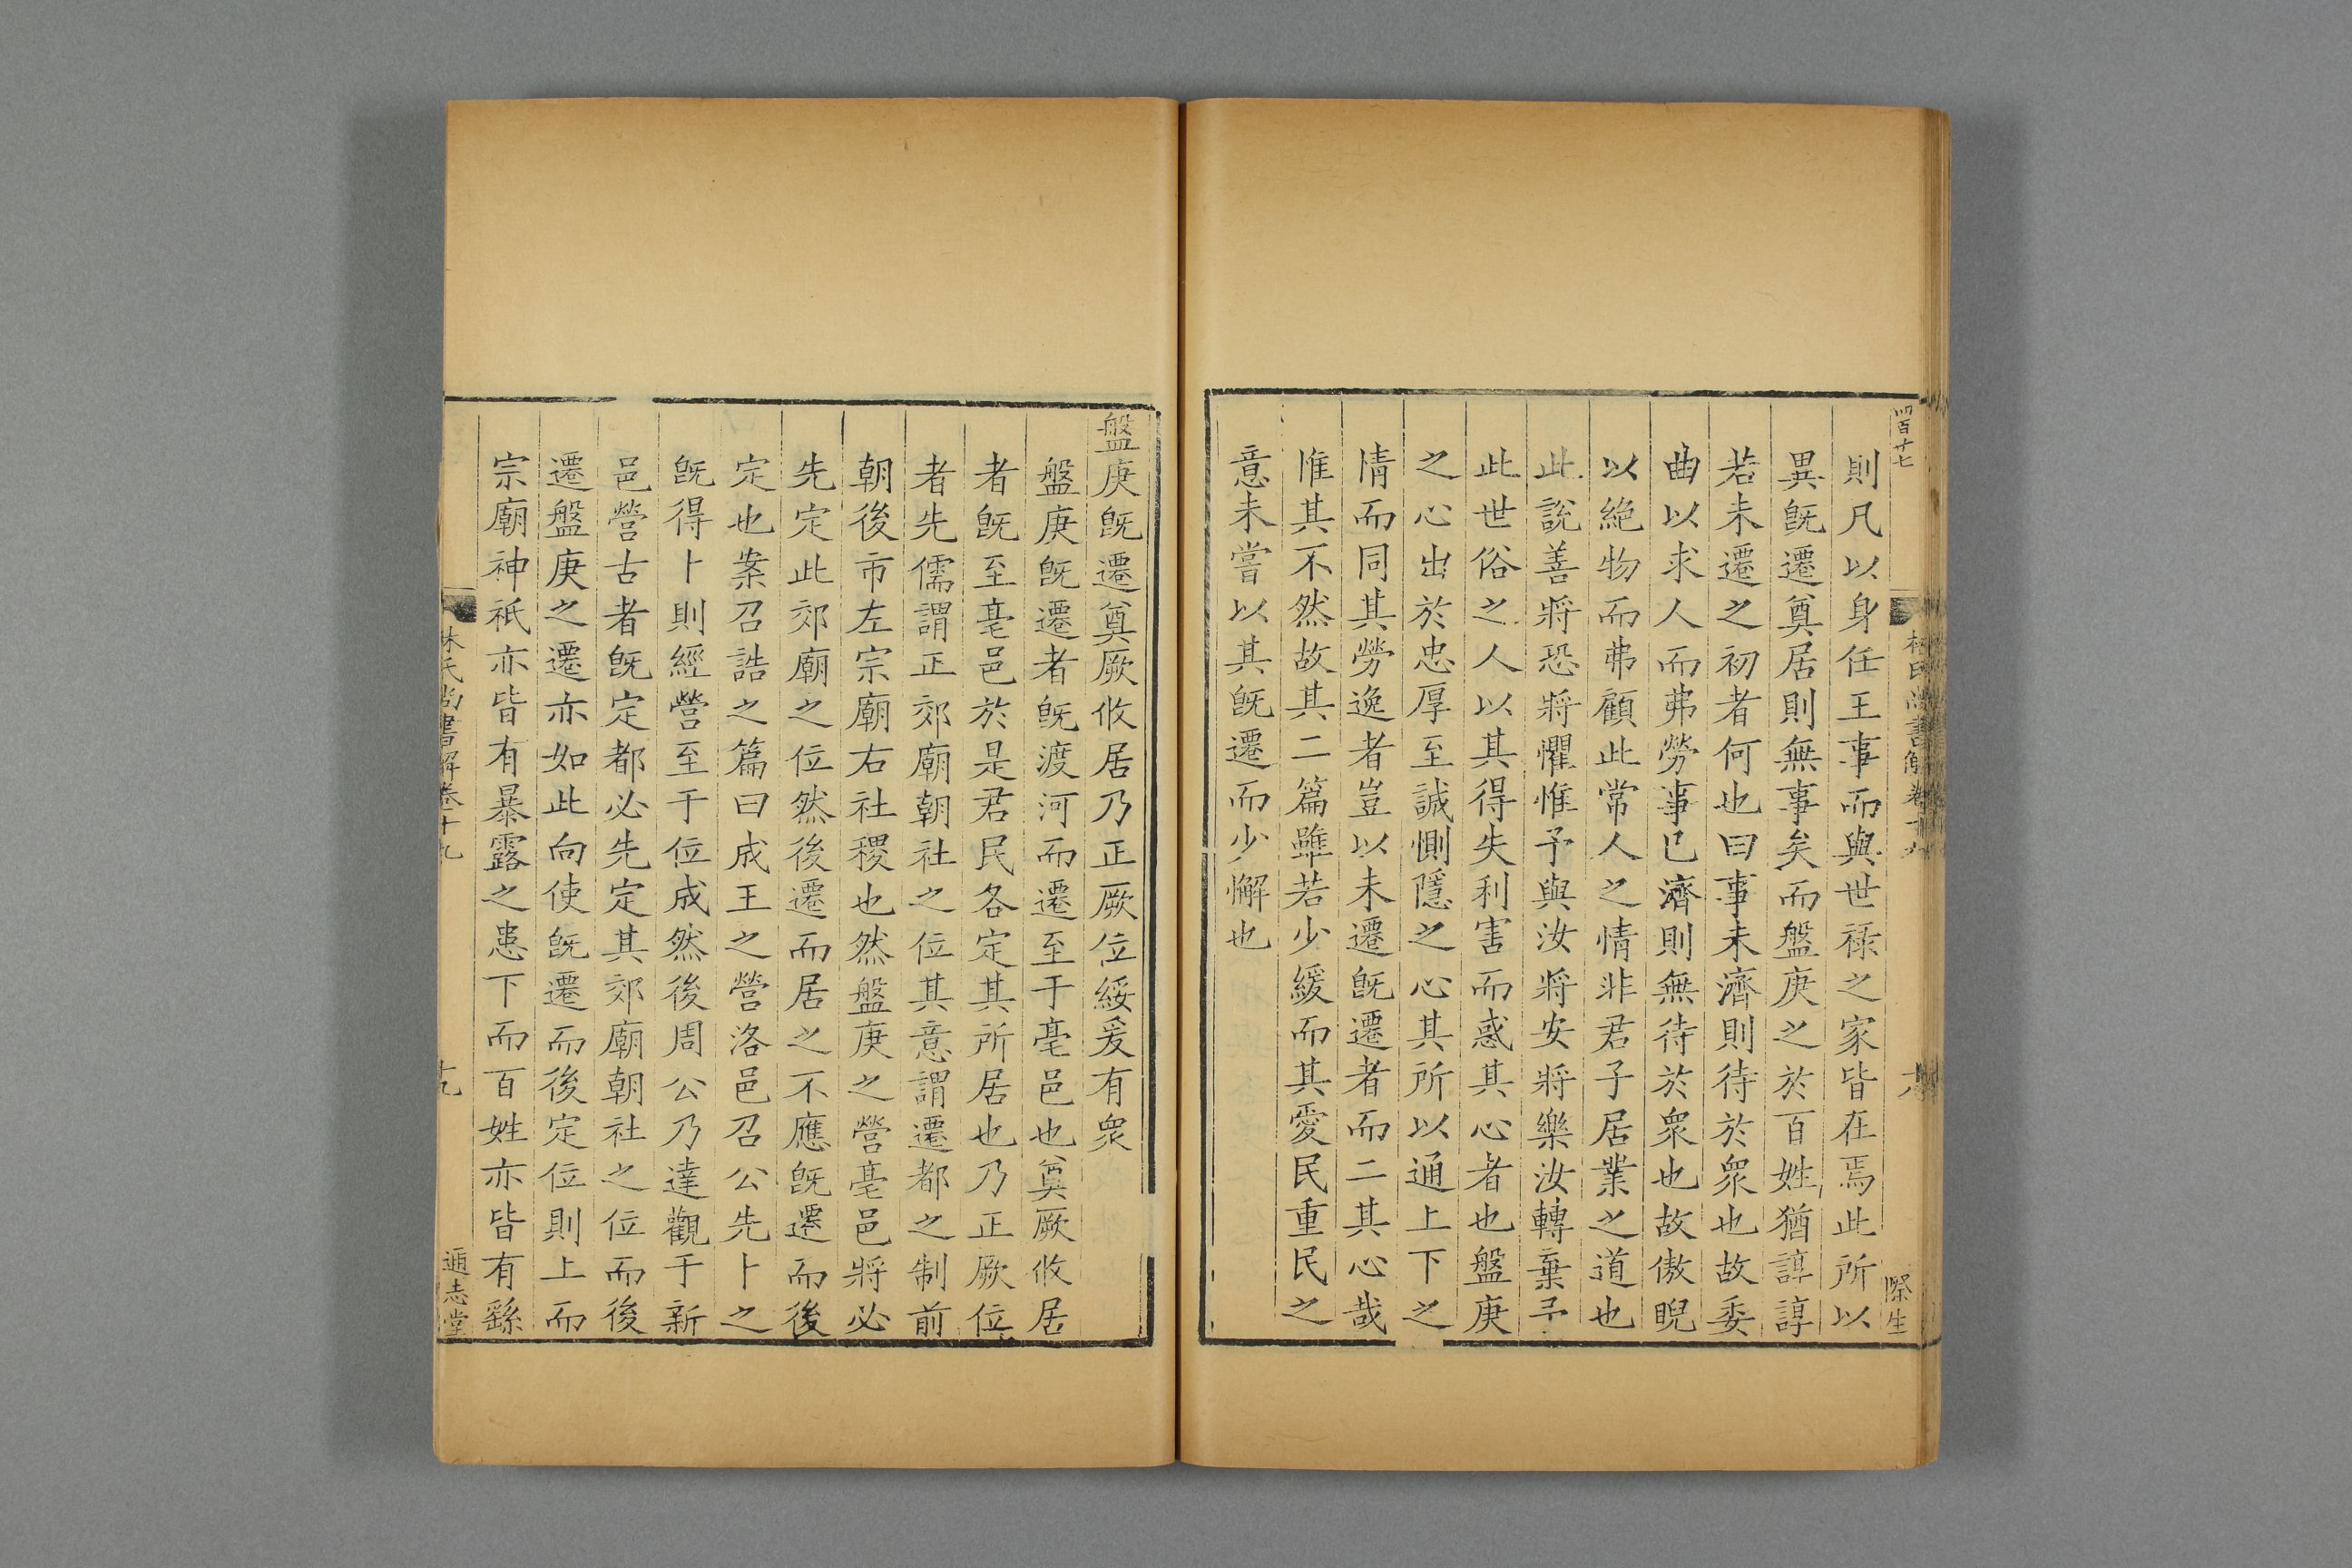 則凡以身任王事而與世祿之家皆在焉此所以
異旣遷奠居則無事矣而盤庚之於百姓猶諄諄
若未遷之初者何也曰事未濟則待於衆也故委
曲以求人而弗勞事已濟則無待於衆也故傲睨
以絶物而弗顧此常人之情非君子居業之道也
此說善將恐將懼惟予與汝將安將樂汝轉棄予
此世俗之人以其得失利害而惑其心者也盤庚
之心出於忠厚至誠惻隱之心其所以通上下之
情而同其勞逸者豈以未遷旣遷者而二其心哉
惟其不然故其二篇雖若少緩而其愛民重民之
意未嘗以其旣遷而少懈也
盤庚旣遷奠厥攸居乃正厥位綏爰有衆
盤庚旣遷者旣渡河而遷至于亳邑也奠厥攸居
者旣至亳邑於是君民各定其所居也乃正厥位
者先儒謂正郊廟朝社之位其意謂遷都之制前
朝後市左宗廟右社稷也然盤庚之營亳邑將必
先定此郊廟之位然後遷而居之不應旣遷而後
定也案召誥之篇曰成王之營洛邑召公先卜之
旣得卜則經營至于位成然後周公乃達觀于新
邑營古者旣定都必先定其郊廟朝社之位而後
遷盤庚之遷亦如此向使旣遷而後定位則上而
宗廟神祇亦皆有暴露之患下而百姓亦皆有繇
林氏尚書解卷十九
十九
通志堂